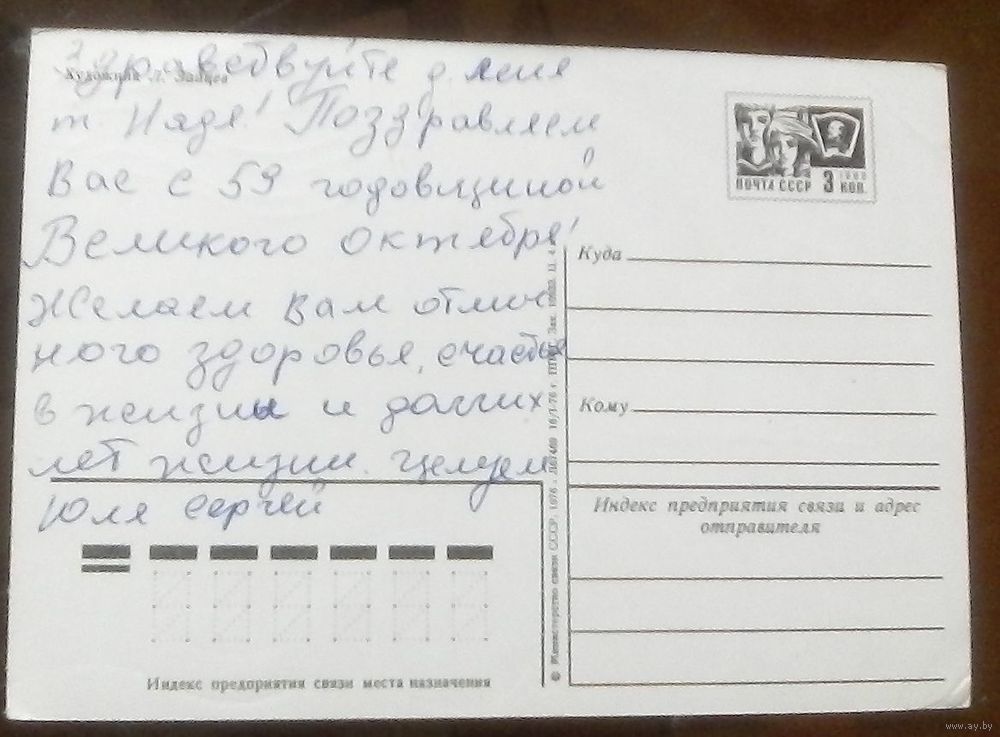 Здравствуйте д. Леня
Художник Л. Зайцев
т. Надя! Поздравляем
Вас с 59 годовщиной
Великого октября!
Желаем вам отлич
ного здоровья, счастья
в жизни и долгих
лет жизни. Целуем
Юля Сергей
ПОЧТА СССР 3 КОП.
Куда
Кому
Индекс предприятия связи и адрес
отправителя
Индекс предприятия связи места назначения
© Министерство связи СССР. 1976
www.ay.by